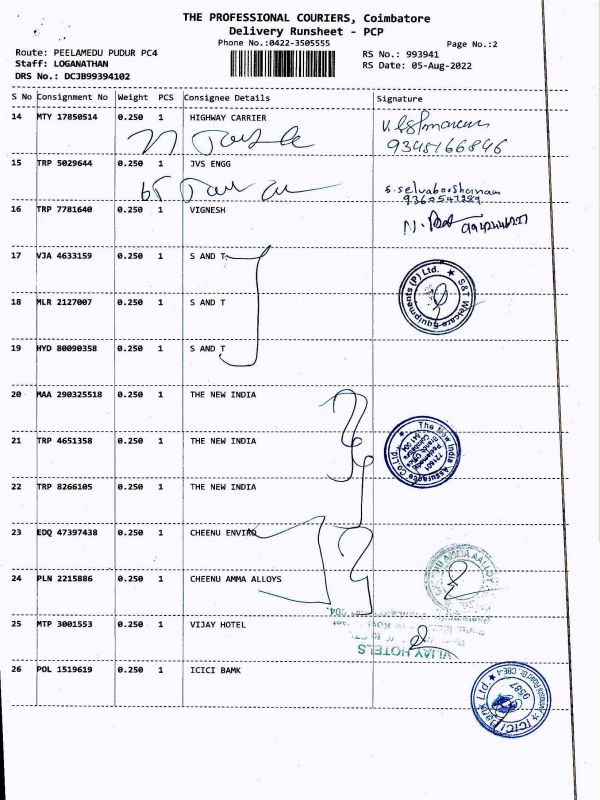 THE PROFESSIONAL COURIERS, Coimbatore
Delivery Runsheet - PCP
Phone No.:0422-3505555
Page No.:2
Route: PEELAMEDU PUDUR PC4
RS No.: 993941
Staff: LOGANATHAN
RS Date: 05-Aug-2022
DRS No.: DCJB99394102
S No Consignment No Weight PCS Consignee Details Signature
14 MTY 17850514 0.250 1 HIGHWAY CARRIER
9345166846
15 TRP 5029644 0.250 1 JVS ENGG
16 TRP 7781640 0.250 1 VIGNESH
17 VJA 4633159 0.250 1 S AND T
S&T Welcare Equipments (P) Ltd.
18 MLR 2127007 0.250 1 S AND T
19 HYD 80090358 0.250 1 S AND T
20 MAA 290325518 0.250 1 THE NEW INDIA
The New India Assurance Co. Ltd.
21 TRP 4651358 0.250 1 THE NEW INDIA
22 TRP 8266105 0.250 1 THE NEW INDIA
23 EDQ 47397438 0.250 1 CHEENU ENVIRO
24 PLN 2215886 0.250 1 CHEENU AMMA ALLOYS
25 MTP 3001553 0.250 1 VIJAY HOTEL
VIJAY HOTELS
26 POL 1519619 0.250 1 ICICI BAMK
ICICI Bank Ltd.
9587